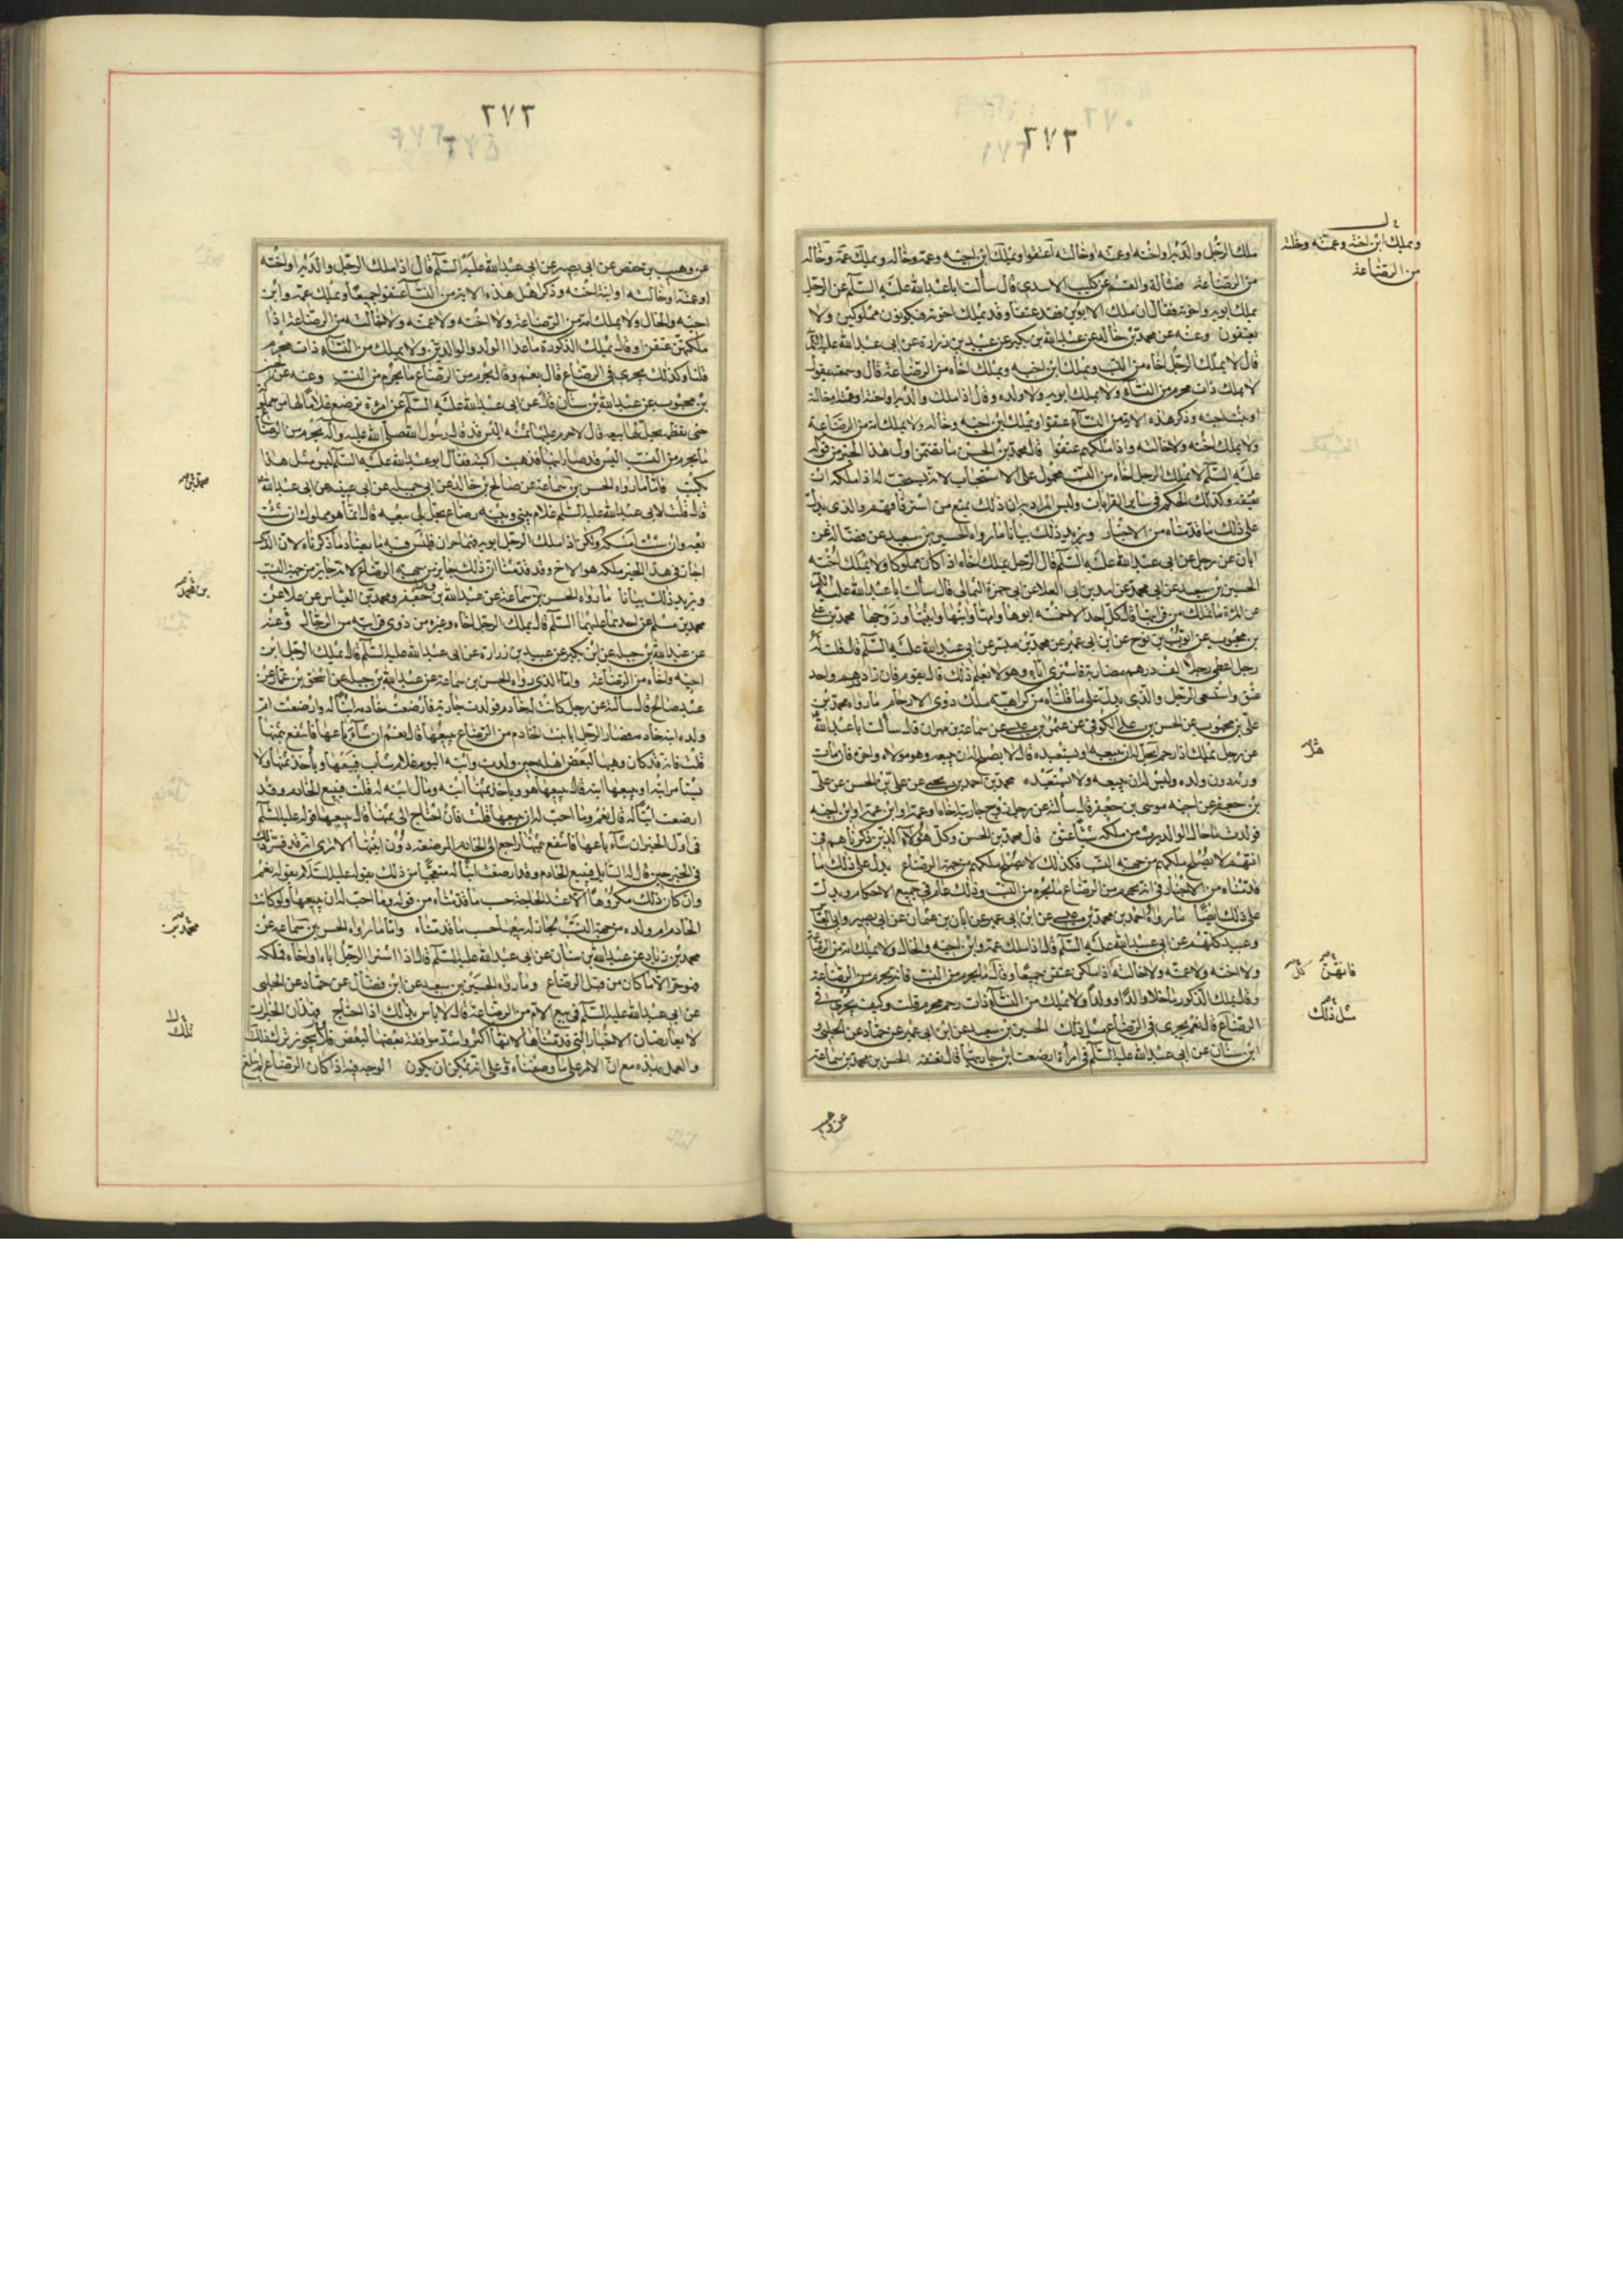 ٢٧٢
ملك الرجل والديه او اخته او عمته او خالته اعتقوا ويملك ابن اخيه وعمه وخاله ويملك عمه وخاله
من الرضاعة فضالة والقسم عن كليب الاسدي قال سألت اباعبدالله عليه السلم عن الرجل
يملك ابويه واخوته فقال ان ملك الابوين فقد عتقا وقد يملك اخوته فيكونون مملوكين ولا
يعتقون وعنه عن محمد بن خالد عن عبدالله بن بكير عن عبيد بن زرارة عن ابى عبدالله عليه السلم
قال لا يملك الرجل اخاه من النسب ويملك ابن اخيه ويملك اخاه من الرضاعة قال وسمعته يقول
لا يملك ذات محرم من النسآء ولا يملك ابويه ولا ولده وقال اذا ملك والديه او اخته او عمته او خالته
او بنت اخيه وذكر هذه الاية من النسآء عتقوا ويملك ابن اخيه وخاله ولا يملك امه من الرضاعة
ولا يملك اخته ولا خالته واذا ملكهم عتقوا قال محمد بن الحسن ما تضمن اول هذا الخبر من قوله
عليه السلم لا يملك الرجل اخاه من النسب محمول على الاستحباب لانه يستحب له اذا ملكه ان
يعتقه وكذلك الحكم فى ساير القرابات وليس المراد به ان ذلك يمنع من استرقاقهم والذى يدل
على ذلك ما قدمناه من الاخبار ويزيد ذلك بيانا ما رواه الحسين بن سعيد عن فضالة عن
ابان عن رجل عن ابى عبدالله عليه السلم قال الرجل يملك اخاه اذا كان مملوكا ولا يملك اخته
الحسين بن سعيد عن ابى محمد عن اسد بن ابى العلا عن ابى حمزة الثمالى قال سألت ابا عبدالله عليه السلم
عن المرءة ما تملك من قرابتها قال كل احد الا خمسة ابوها وامها وابنها وابنتها وزوجها محمد بن على
بن محبوب عن ايوب بن نوح عن ابن ابى عمير عن محمد بن ميسر عن ابى عبدالله عليه السلم قال قلت له
رجل اعطى رجلا الف درهم مضاربة فاشترى اباه وهو لا يعلم ذلك قال يقوم فان زاد درهم واحد
عتق واستسعى الرجل والذى يدل على ما قلناه من كراهية ملك ذوى الارحام ما رواه محمد بن
على بن محبوب عن الحسن بن على الكوفى عن عثمن بن عيسى عن سماعة بن مهران قال سألت اباعبدالله
عن رجل يملك ذا رحم يحل له ان يبيعه او يستعبده قال لا يصلح له ان يبيعه وهو مولاه واخوه فان مات
ورثه دون ولده وليس له ان يبيعه ولا يستعبده محمد بن احمد بن يحيى عن على بن الحسن عن على
بن جعفر عن اخيه موسى بن جعفر قال سألته عن رجل زوج جاريته اخاه او عمه او ابن عمه او ابن اخيه
فولدت ما حال الولد يرث من ملكه شيئا عتق قال محمد بن الحسن وكل هؤلاء الذين ذكرناهم فى
انهم لا يصلح ملكهم من جهة النسب فكذلك لا يصلح ملكهم من جهة الرضاع يدل على ذلك ما
قدمناه من الاخبار فى انه يحرم من الرضاع ما يحرم من النسب وذلك عام فى جميع الاحكام ويدل
على ذلك ايضا ما رواه احمد بن محمد بن عيسى عن ابن ابى عمير عن ابان بن عثمان عن ابى بصير وابى العبا
وعبيد كلهم عن ابى عبدالله عليه السلم قال اذا ملك عمه وابن اخيه والخال ولا يملك امه من الرضاعة
ولا اخته ولا عمته ولا خالته اذا ملكن عتقن جميعا وقال ما يحرم من النسب فانه يحرم من الرضاعة
وقال يملك الذكور ما خلا والدا او ولدا ولا يملك من النسآء ذات رحم محرم قلت وكيف يجرى فى
الرضاع قال نعم يجرى فى الرضاع مثل ذلك الحسين بن سعيد عن ابن ابى عمير عن حماد عن الحلبى و
ابن سنان عن ابى عبدالله عليه السلم فى امرأة ارضعت ابن جاريتها قال تعتقه الحسن بن محمد بن سماعة
ويملك ابن اخته وعمته وخالته
من الرضاعة
فانهن كل
مثل ذلك
عن وهيب
٢٧٣
عن وهيب بن حفص عن ابى بصير عن ابى عبدالله عليه السلم قال اذا ملك الرجل والديه او اخته
او عمته او خالته او ابنة اخته وذكر اهل هذه الاية من النسآء عتقوا جميعا ويملك عمه وابن
اخيه والخال ولا يملك امه من الرضاعة ولا اخته ولا عمته ولا خالته من الرضاعة اذا
ملكهن عتقن وقال يملك الذكورة ما عدا الولد والوالدين ولا يملك من النسآء ذات محرم
قلنا وكذلك يجرى فى الرضاع قال نعم وقال يحرم من الرضاع ما يحرم من النسب وعنه عن الحسن
بن محبوب عن عبدالله بن سنان قال عن ابى عبدالله عليه السلم عن امرءة ترضع غلاما لها من مملوكة
حتى تفطمه يحل لها بيعه قال لا حرم عليها ثمنه اليس قد قال رسول الله صلى الله عليه واله يحرم من الرضاع
ما يحرم من النسب اليس قد صار ابنها فذهبت اكتبه فقال ابوعبدالله عليه السلم ليس مثل هذا
يكتب فاما ما رواه الحسن بن سماعة عن صالح بن خالد عن ابى جميلة عن ابى عيينه عن ابى عبدالله
قال قلت لابى عبدالله عليه السلم غلام بينى وبينه رضاع يحل لى بيعه قال انما هو مملوك ان شئت
بعه وان شئت امسكه ولكن اذا ملك الرجل ابويه فهما حران فليس فيه ما ينافى ما ذكرناه لان الذى
اجاز فى هذا الخبر ملكه هو الاخ وقد قدمنا ان ذلك جايز من جهة الرضاع لانه جايز من جهة النسب
ويزيد ذلك بيانا ما رواه الحسن بن سماعة عن عبدالله بن جعفر ومحمد بن العباس عن علا عن
محمد بن مسلم عن احدهما عليهما السلم قال يملك الرجل اخاه وغيره من ذوى قرابته من الرجال وعنه
عن عبدالله بن جبله عن ابن بكير عن عبيد بن زرارة عن ابى عبدالله عليه السلم قال يملك الرجل ابن
اخيه واخاه من الرضاعة واما الذى رواه الحسن بن سماعة عن عبدالله بن جبلة عن اسحق بن عمار عن
عبد صالح قال سألته عن رجل كانت له خادم فولدت جارية فارضعت خادمه ابنا له وارضعت ام
ولده ابنة خادمه فصار الرجل ابا بنت الخادم من الرضاع يبيعها قال نعم ان شآء باعها فانتفع بثمنها
قلت فانه قد كان وهبها لبعض اهله حين ولدت وابنه اليوم غلام شاب فيبيعها ويأخذ ثمنها ولا
يستامر ابنه او يبيعها ابنه قال يبيعها هو ويأخذ ثمنها ابنه ومال ابنه له قلت فيبيع الخادم وقد
ارضعت ابنا له قال نعم وما احب له ان يبيعها قلت فان احتاج الى ثمنها قال يبيعها قوله عليه السلم
فى اول الخبر ان شآء باعها فانتفع بثمنها راجع الى الخادم المرضعة دون ابنتها الا ترى انه قد فسر ذلك
فى الخبر حين قال له السايل فيبيع الخادم وقد ارضعت ابنا له متعجبا من ذلك بقوله عليه السلام بقوله نعم
وان كان ذلك مكروها الا عند الحاجة حسب ما قدمناه من قوله وما احب له ان يبيعها ولو كانت
الخادم ام ولده من جهة النسب لجاز له بيعها حسب ما قدمناه واما ما رواه الحسن بن سماعة عن
محمد بن زياد عن عبدالله بن سنان عن ابى عبدالله عليه السلم قال اذا اشترا الرجل اباه او اخاه فملكه
فهو حر الا ما كان من قبل الرضاع وما رواه الحسين بن سعيد عن ابن فضال عن حماد عن الحلبى
عن ابى عبدالله عليه السلم فى بيع الام من الرضاعة قال لا باس بذلك اذا احتاج فهذان الخبران
لا يعارضان الاخبار التى قدمناها لانها اكثر واشد موافقة بعضها لبعض فلا يجوز ترك ذلك
والعمل بهذه مع ان الامر على ما وصفناه وعلى انه يمكن ان يكون الوجه فيه اذا كان الرضاع لم يبلغ
محمد بن
بن محمد
محمد بن
تلك